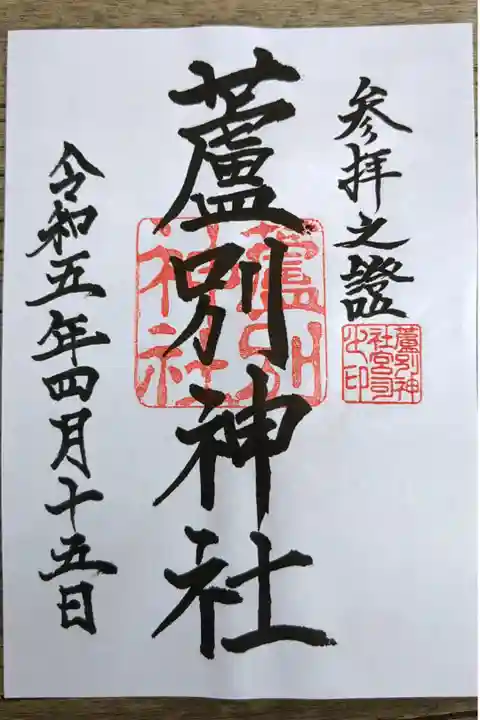 参拜之證
蘆別神
社宮司
之印
蘆別神社
蘆別
神社
令和五年四月十五日